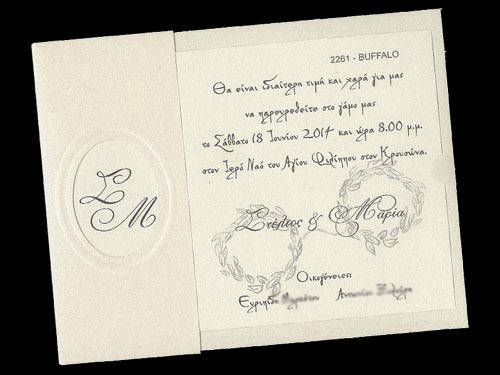 2261 - BUFFALO
Θα είναι ιδιαίτερη τιμή και χαρά για μας
να παρευρεθείτε στο γάμο μας
το Σάββατο 18 Ιουνίου 2014 και ώρα 8.00 μ.μ.
στον Ιερό Ναό του Αγίου Φιλίππου στον Κρουσώνα.
Σ
Μ
Στέλιος & Μαρία
Οικογένειες:
Ευριπίδη
Αντωνίου